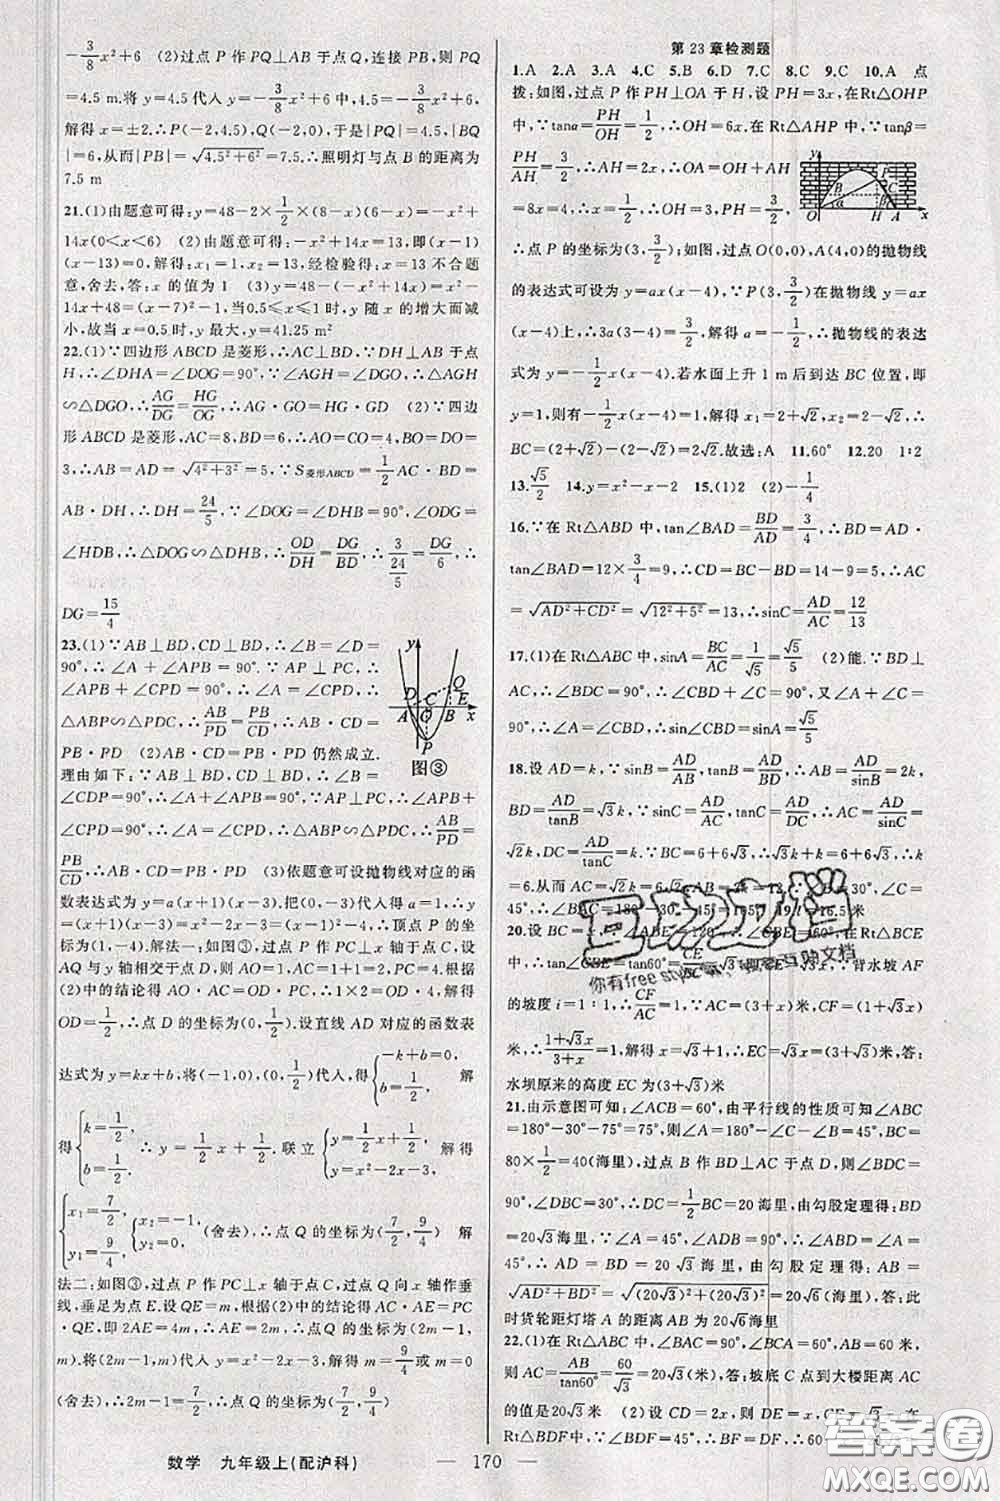 -3/8x²+6　(2)过点 P 作 PQ⊥AB 于点 Q,连接 PB,则 PQ
=4.5 m.将 y=4.5 代入 y=-3/8x²+6 中,4.5=-3/8x²+6,
解得:x=±2.∴P(-2,4.5),Q(-2,0),于是|PQ|=4.5,|BQ
|=6,从而|PB|=√(4.5²+6²)=7.5.∴照明灯与点 B 的距离为
7.5 m
21.(1)由题意可得:y=48-2×1/2×(8-x)(6-x)=-x²+
14x(0<x<6)　(2)由题意可得:-x²+14x=13,即(x-1)
(x-13)=0,解得:x₁=1,x₂=13,经检验得:x=13 不合题
意,舍去,答:x 的值为 1　(3)y=48-(-x²+14x)=x²-
14x+48=(x-7)²-1,当0.5≤x≤1 时,y 随 x 的增大而减
小,故当 x=0.5 时,y最大=41.25 m²
22.(1)∵四边形 ABCD 是菱形,∴AC⊥BD,∵DH⊥AB 于点
H,∴∠DHA=∠DOG=90°,∵∠AGH=∠DGO,∴△AGH
∽△DGO,∴AG/DG=HG/OG,∴AG·GO=HG·GD　(2)∵四边
形 ABCD 是菱形,AC=8,BD=6,∴AO=CO=4,BO=DO=
3,∴AB=AD=√(4²+3²)=5,∵S菱形ABCD=1/2AC·BD=
AB·DH,∴DH=24/5,∵∠DOG=∠DHB=90°,∠ODG=
∠HDB,∴△DOG∽△DHB,∴OD/DH=DG/BD,∴3/(24/5)=DG/6,∴
DG=15/4
23.(1)∵AB⊥BD,CD⊥BD,∴∠B=∠D=
90°,∴∠A+∠APB=90°,∵AP⊥PC,∴∠
APB+∠CPD=90°,∴∠A=∠CPD,∴
△ABP∽△PDC,∴AB/PD=PB/CD,∴AB·CD=
PB·PD　(2)AB·CD=PB·PD 仍然成立.
理由如下:∵AB⊥BD,CD⊥BD,∴∠B=
∠CDP=90°,∴∠A+∠APB=90°,∵AP⊥PC,∴∠APB+
∠CPD=90°,∴∠A=∠CPD,∴△ABP∽△PDC,∴AB/PD=
PB/CD,∴AB·CD=PB·PD　(3)依题意可设抛物线对应的函
数表达式为 y=a(x+1)(x-3).把(0,-3)代入得 a=1,∴y=
(x+1)(x-3)=x²-2x-3=(x-1)²-4,∴顶点 P 的坐
标为(1,-4).解法一:如图③,过点 P 作 PC⊥x 轴于点 C.设
AQ 与 y 轴相交于点 D.则 AO=1,AC=1+1=2,PC=4.根据
(2)中的结论得 AO·AC=OD·PC,∴1×2=OD×4.解得
OD=1/2,∴点 D 的坐标为(0,1/2).设直线 AD 对应的函数表
达式为 y=kx+b,将(-1,0),(0,1/2)代入得,{-k+b=0, b=1/2,　解
得{k=1/2, b=1/2,∴y=1/2x+1/2.联立{y=1/2x+1/2, y=x²-2x-3,　解得
{x₁=7/2, y₁=9/4,{x₂=-1, y₂=0,(舍去),∴点 Q 的坐标为(7/2,9/4)　解
法二:如图③,过点 P 作 PC⊥x 轴于点 C,过点 Q 向 x 轴作垂
线,垂足为点 E.设 QE=m,根据(2)中的结论得 AC·AE=PC
·QE,即 2AE=4m,∴AE=2m,∴点 Q 的坐标为(2m-1,
m).将(2m-1,m)代入 y=x²-2x-3,解得 m=9/4或 m=0
(舍去),∴2m-1=7/2,∴点 Q 的坐标为(7/2,9/4)
y
D C Q
A O B E x
P
图③
第 23 章检测题
1.A　2.A　3.A　4.C　5.B　6.D　7.C　8.C　9.C　10.A　点
拨:如图,过点 P 作 PH⊥OA 于 H,设 PH=3x,在 Rt△OHP
中,∵tanα=PH/OH=1/2,∴OH=6x.在 Rt△AHP 中,∵tanβ=
PH/AH=3/2,∴AH=2x,∴OA=OH+AH
=8x=4,∴x=1/2,∴OH=3,PH=3/2,
y
P
B C
β
O α H A x
∴点 P 的坐标为(3,3/2);如图,过点 O(0,0),A(4,0)的抛物线
的表达式可设为 y=ax(x-4),∵P(3,3/2)在抛物线 y=ax
(x-4)上,∴3a(3-4)=3/2,解得 a=-1/2,∴抛物线的表达
式为 y=-1/2x(x-4).若水面上升 1 m 后到达 BC 位置,即
y=1,则有-1/2x(x-4)=1,解得 x₁=2+√2,x₂=2-√2,∴
BC=(2+√2)-(2-√2)=2√2.故选:A　11.60°　12.20　1:2
13.√5/2　14.y=x²-x-2　15.(1)2　(2)-1/4
16.∵在 Rt△ABD 中,tan∠BAD=BD/AD=3/4,∴BD=AD·
tan∠BAD=12×3/4=9,∴CD=BC-BD=14-9=5,∴AC
=√(AD²+CD²)=√(12²+5²)=13,∴sinC=AD/AC=12/13
17.(1)在 Rt△ABC 中,sinA=BC/AC=1/√5=√5/5　(2)能.∵BD⊥
AC,∴∠BDC=90°,∴∠CBD+∠C=90°,又∠A+∠C=
90°,∴∠A=∠CBD,∴sin∠CBD=sinA=√5/5
18.设 AD=k,∵sinB=AD/AB,tanB=AD/BD,∴AB=AD/sinB=2k,
BD=AD/tanB=√3k,∵sinC=AD/AC,tanC=AD/DC,∴AC=AD/sinC=
√2k,DC=AD/tanC=k.∵BC=6+6√3,∴√3k+k=6+6√3,∴k
=6.从而 AC=√2k=6√2
45°,∴∠BAC=180°-30°-45°=105°　19.
20.设 BC=x
∠CBE=60°.在 Rt△BCE
中,∵tan∠CBE=tan60°=CE/BC=√3,∴CE=√3x,∵背水坡 AF
的坡度 i=1:1,∴CF/AC=1,∵AC=(3+x)米,CF=(1+√3x)
米,∴(1+√3x)/(3+x)=1,解得 x=√3+1,∴EC=√3x=3+√3米,答:
水坝原来的高度 EC 为(3+√3)米
21.由示意图可知:∠ACB=60°,由平行线的性质可知∠ABC
=180°-30°-75°=75°,则∠A=180°-∠ACB-∠ABC=180°-60°-75°=45°,BC=
80×1/2=40(海里),过点 B 作 BD⊥AC 于点 D,则∠BDC=
90°,∠DBC=30°,∴CD=1/2BC=20 海里,由勾股定理得:BD
=20√3海里,∵∠A=45°,∠ADB=90°,∴∠ABD=
45°=∠A,∴AD=BD=20√3海里,由勾股定理得:AB=
√(AD²+BD²)=√((20√3)²+(20√3)²)=20√6(海里),答:此
时货轮距灯塔 A 的距离为 AB 为 20√6海里
22.(1)在 Rt△ABC 中,∠BAC=90°,∠BCA=60°,AB=60 米,
则 AC=AB/tan60°=60/√3=20√3(米),答:坡底 C 点到大楼距离 AC
的值是 20√3米　(2)设 CD=2x,则 DE=x,CE=√3x,在
Rt△BDF 中,∵∠BDF=45°,∴BF=DF,∴60-
互助文档
你有 free style
互助文档
答案圈
MXQE.COM
数学　九年级上(配沪科)　— 170 —